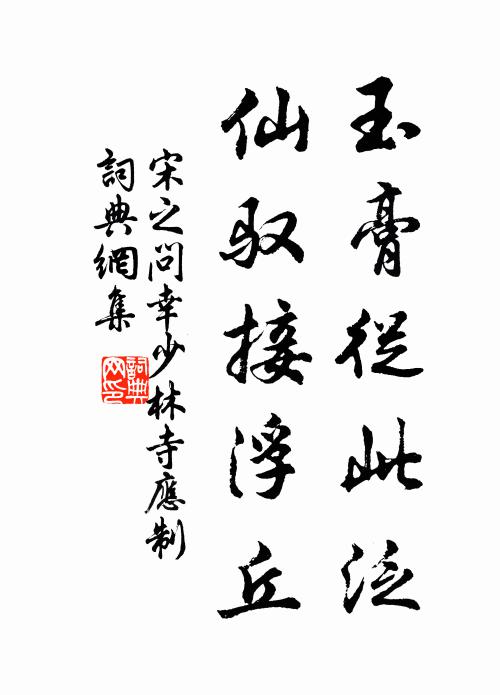 玉膏從此泛
仙馭接浮丘
宋之問幸少林寺應制
詞典網集
詞典網印